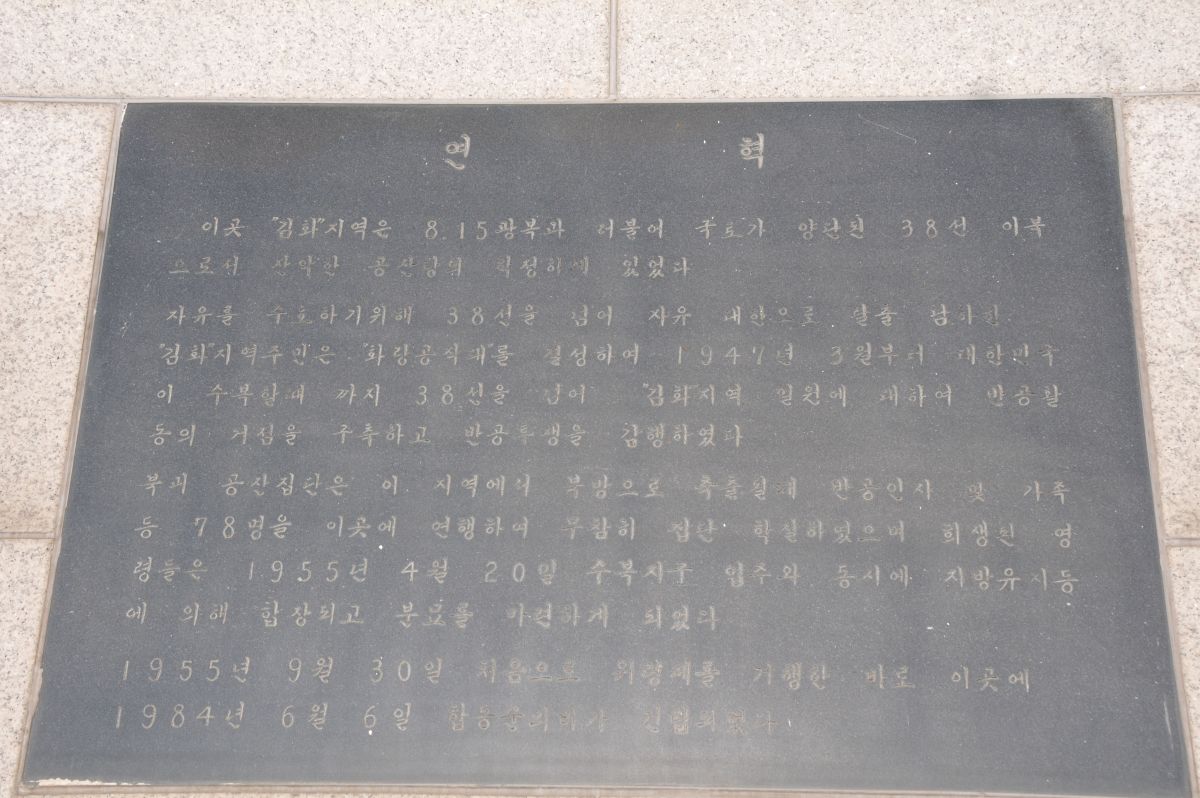 연 혁
이곳 "김화"지역은 8.15광복과 더불어 국토가 양단된 38선 이북
으로서 산악한 공산당의 학정하에 있었다
자유를 수호하기위해 38선을 넘어 자유 대한으로 탈출 남하한
"김화"지역주민은 "화랑공작대"를 결성하여 1947년 3월부터 대한민국
이 수복할때 까지 38선을 넘어 "김화"지역 일원에 대하여 반공활
동의 거점을 구축하고 반공투쟁을 감행하였다
북괴 공산집단은 이 지역에서 북방으로 축출될때 반공인사 및 가족
등 78명을 이곳에 연행하여 무참히 집단 학살하였으며 희생된 영
령들은 1955년 4월 20일 수복지구 입주와 동시에 지방유지등
에 의해 합장되고 분묘를 마련하게 되었다
1955년 9월 30일 처음으로 위령제를 거행한 바로 이곳에
1984년 6월 6일 합동순의비가 건립되었다